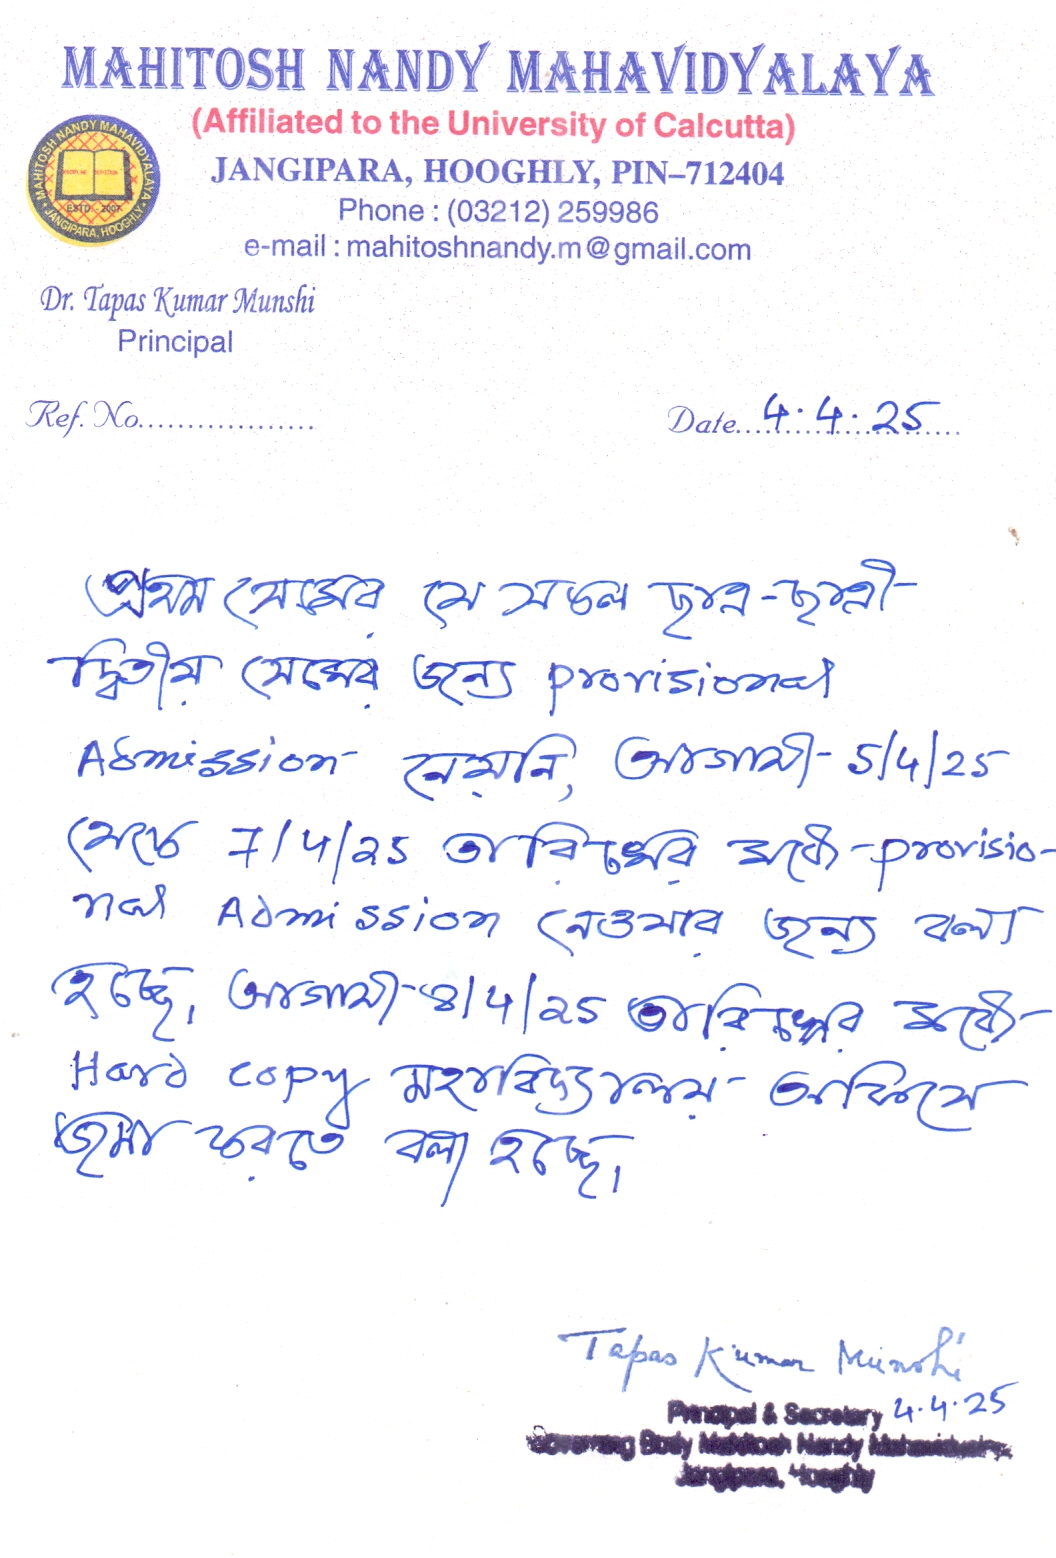 MAHITOSH NANDY MAHAVIDYALAYA
(Affiliated to the University of Calcutta)
JANGIPARA, HOOGHLY, PIN–712404
Phone : (03212) 259986
e-mail : mahitoshnandy.m@gmail.com
MAHITOSH NANDY MAHAVIDYALAYA
ESTD. - 2007
JANGIPARA, HOOGHLY
Dr. Tapas Kumar Munshi
Principal
Ref. No.................
Date 4.4.25
প্রথম সেমের যে সকল ছাত্র-ছাত্রী
দ্বিতীয় সেমের জন্য provisional
Admission নেয়নি, আগামী 5/4/25
থেকে 7/4/25 তারিখের মধ্যে provisio-
nal Admission নেওয়ার জন্য বলা
হচ্ছে। আগামী 8/4/25 তারিখের মধ্যে
Hard copy মহাবিদ্যালয় অফিসে
জমা করতে বলা হচ্ছে।
Tapas Kumar Munshi
4.4.25
Principal & Secretary
Governing Body Mahitosh Nandy Mahavidyalaya
Jangipara, Hooghly